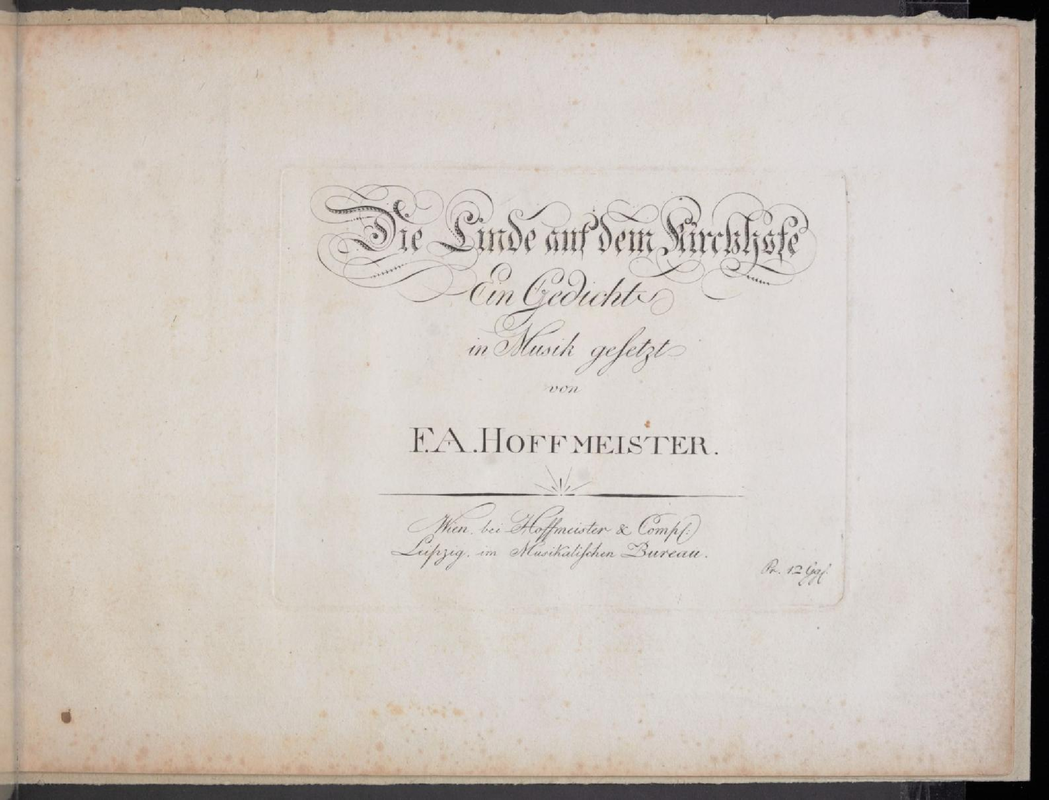 Die Linde auf dem Kirchhofe
Ein Gedicht
in Musik gesetzt
von
F.A. HOFFMEISTER.
Wien. bei Hoffmeister & Comp:
Leipzig. im Musikalischen Bureau.
Pr. 12 Ggr.